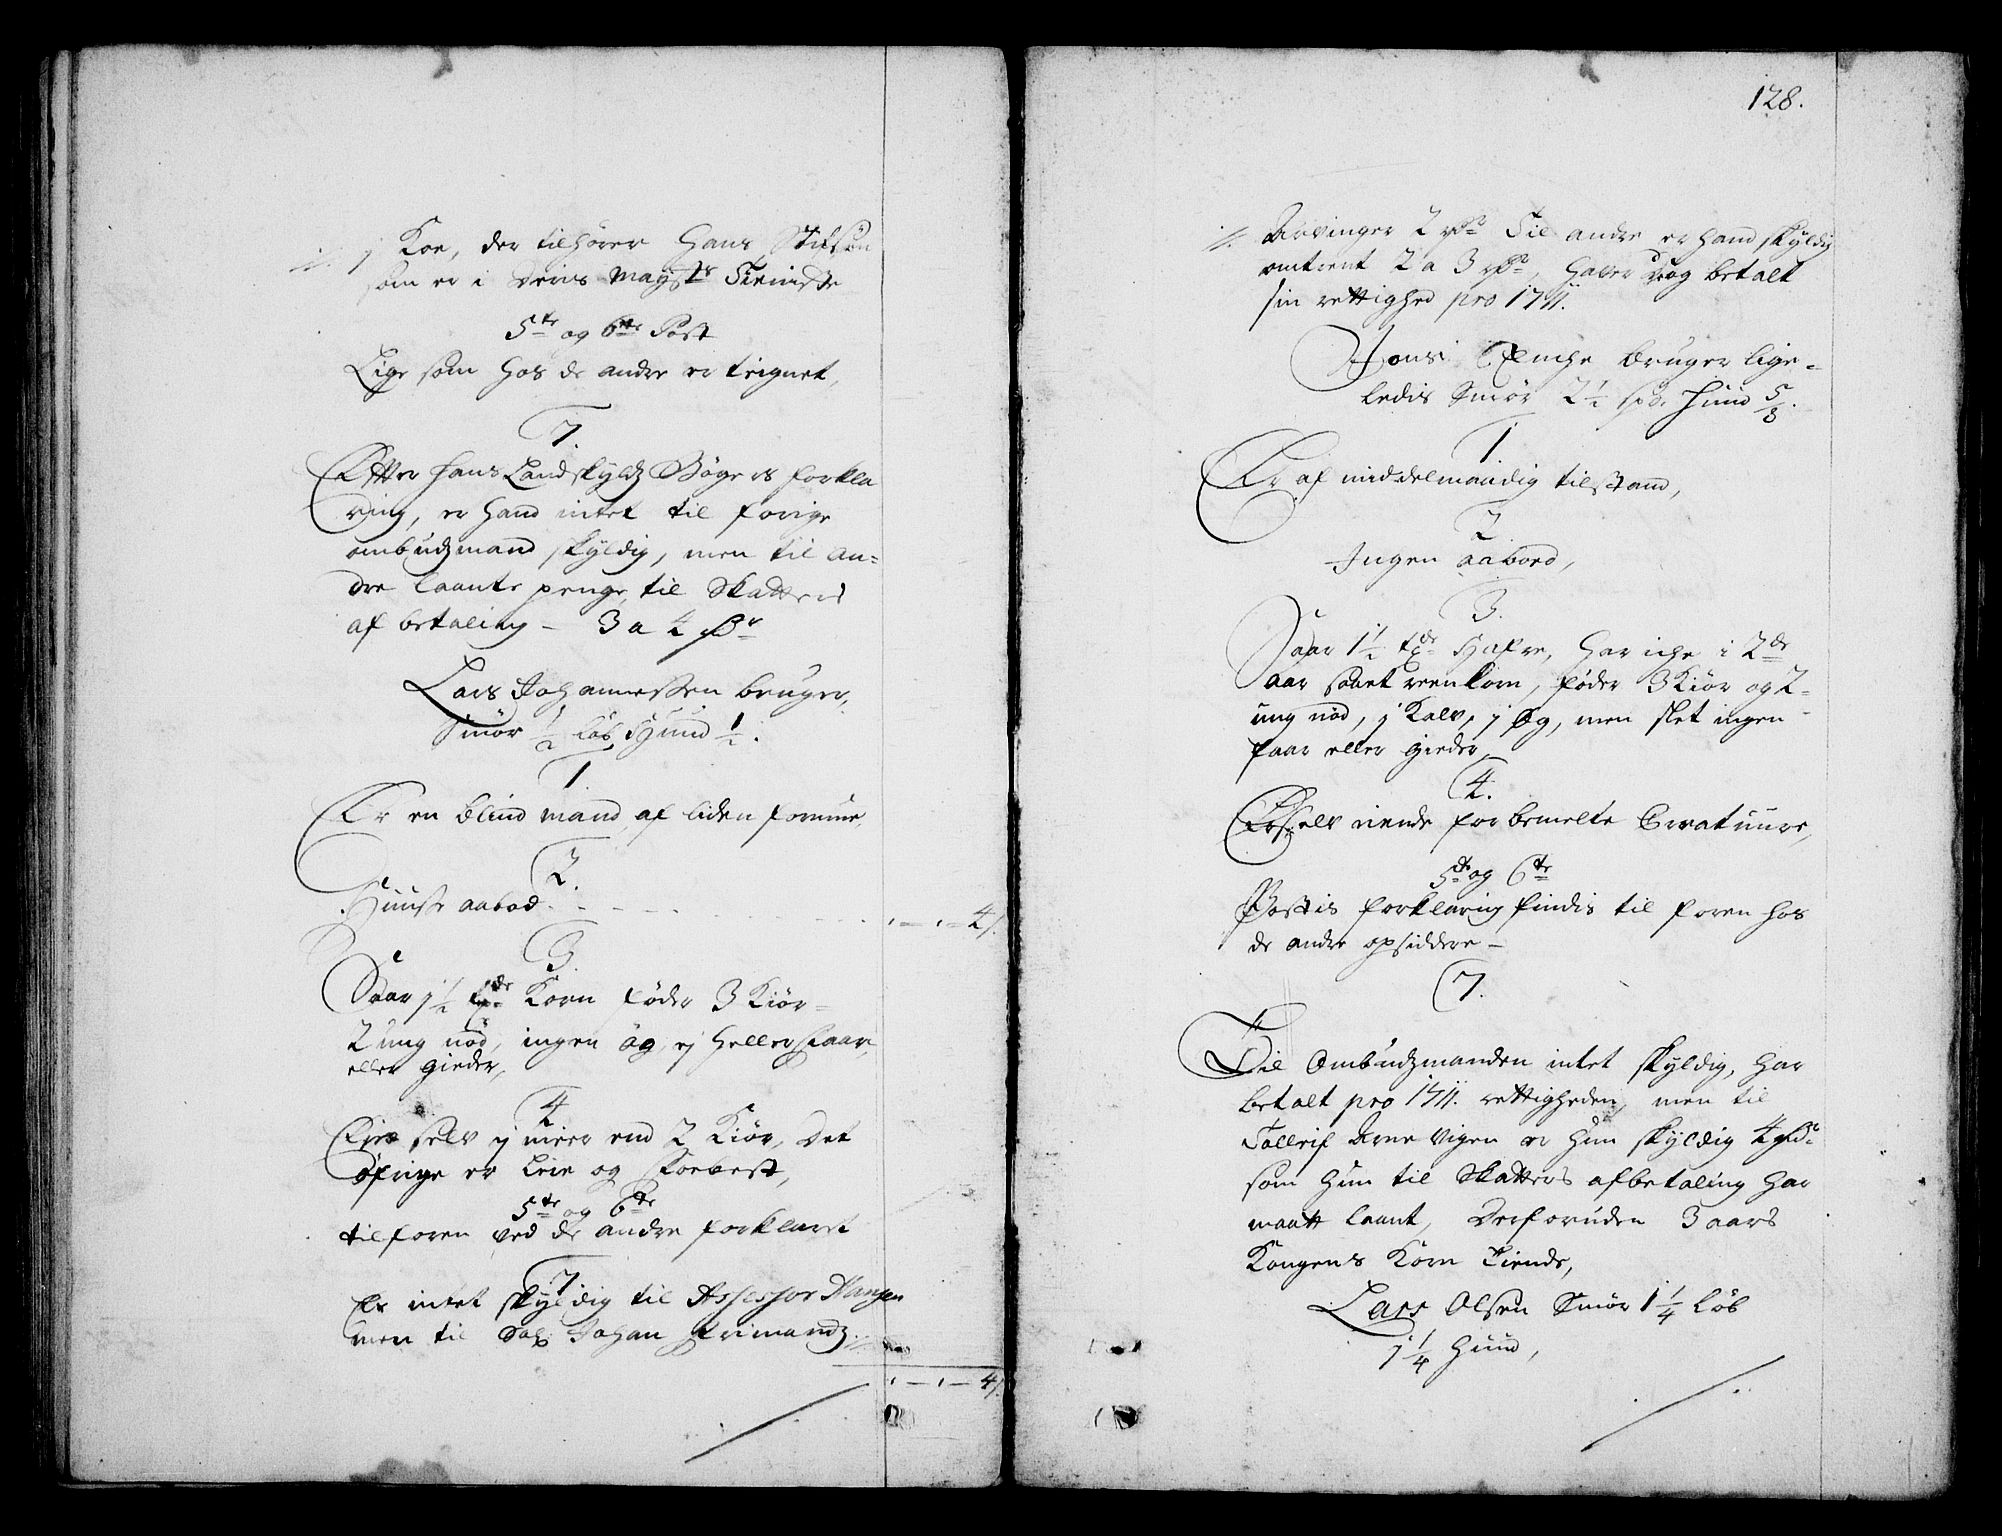 j Koe, der tilhører Hans Stisøn
som er i Deris Mayst:s Tieniste
5te og 6te Post
Lige som hos de andre er teignet,
7.
Efter hans Landskyldz Bøgers forkla
ring, er hand intet til forige
ombudzmand skyldig, men til an=
dre laante penge, til Skatters
afbetaling - 3 a 4 Rdr
Lars Johannessen bruger,
Smør ½ Løb, Huud ½.
1
Er en blind mand, af liden formue,
2.
Huuse aabod - - - - 1 - 1 - 4 s.
3.
Saar 1½ tdr Korn føder 3 Kiør=
2 ung nød, ingen øg, ej heller faar,
eller gieder,
4
Ejer selv ej meer end 2 Kiør, Det
øfrige er Leie og Foerbest,
5te og 6te
tilforen ved de andre forklaret
7
Er intet skyldig til Assessor Hansen
men til Sal: Johan Frimandz
1 - 1 - 4 s.
128.
Arvinger 2 Rdr Til andre er hand skyldig
omtrent 2 a 3 Rdr, haver og betalt
sin rettighed pro 1711.
Enche bruger lige=
ledis Smør 2½ spd. Huud 5/8.
1
Er af middelmaadig tilstand,
2
Ingen aabord,
3.
Saar 1½ tdr Hafre, har iche i 2de
aar saaet reen korn, føder 3 Kiør og 2=
ung nød, j Kalv, j øg, men slet ingen
faar eller gieder,
4.
Er selv eiende forbemelte Creatuure,
5te og 6te
Postis forklaring findis til foren hos
de andre opsiddere -
7.
Til Ombudzmanden intet skyldig, har
betalt pro 1711. rettigheden, men til
Tolleif Arne Vigen er hun skyldig 4 Rdr
som hun til Skatters afbetaling har
maatt laant, Desforuden 3 aars
Kongens Korn Tiende,
Lars Olsen Smør 1¼ Løb
1¼ Huud,